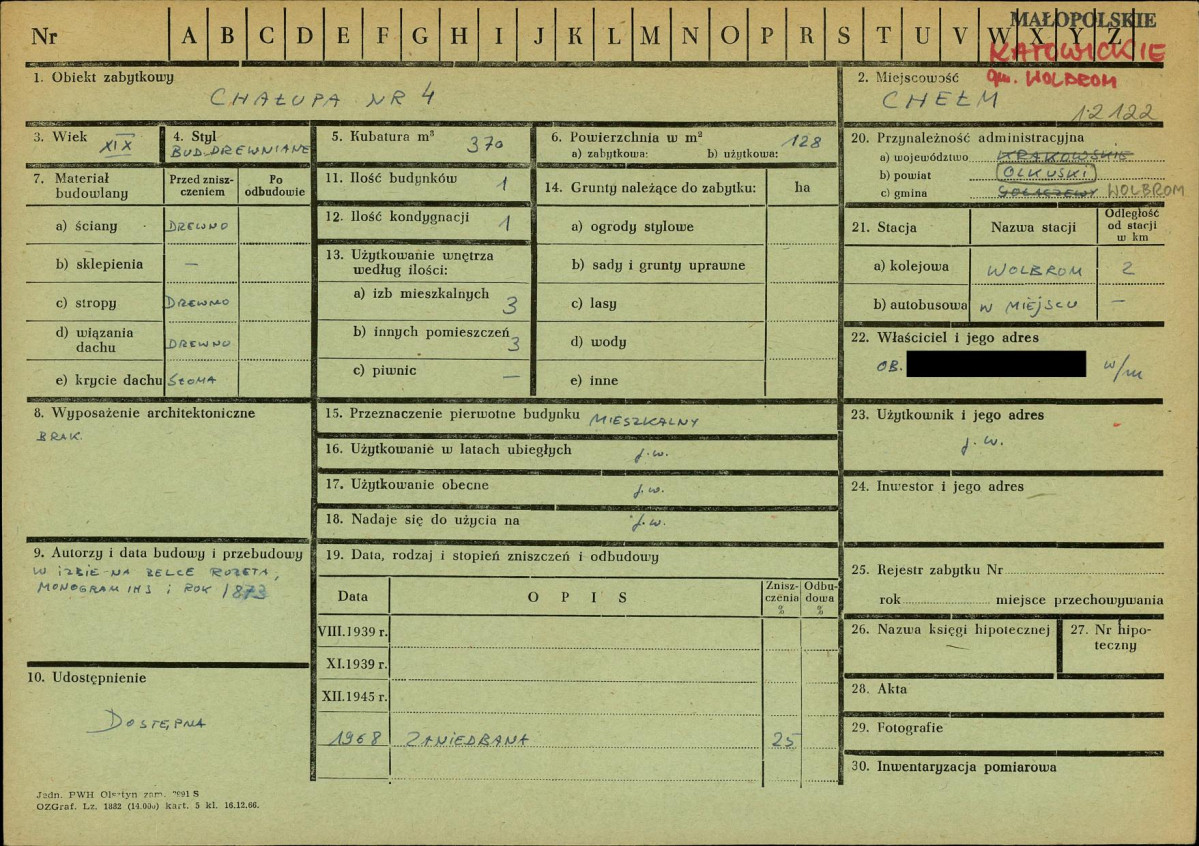 MAŁOPOLSKIE
Nr A B C D E F G H I J K L M N O P R S T U V W X Y Z
KATOWICKIE
gm. WOLBROM
1. Obiekt zabytkowy
CHAŁUPA NR 4
2. Miejscowość
CHEŁM
12122
3. Wiek XIX
4. Styl
BUD. DREWNIANE
5. Kubatura m³ 370
6. Powierzchnia w m²
a) zabytkowa: b) użytkowa: 128
7. Materiał budowlany
Przed zniszczeniem
Po odbudowie
a) ściany DREWNO
b) sklepienia —
c) stropy DREWNO
d) wiązania dachu DREWNO
e) krycie dachu SŁOMA
8. Wyposażenie architektoniczne
BRAK.
9. Autorzy i data budowy i przebudowy
W IZBIE NA BELCE ROZETA,
MONOGRAM IHS i ROK 1873
10. Udostępnienie
DOSTĘPNA
11. Ilość budynków 1
12. Ilość kondygnacji 1
13. Użytkowanie wnętrza
według ilości:
a) izb mieszkalnych 3
b) innych pomieszczeń 3
c) piwnic —
14. Grunty należące do zabytku: ha
a) ogrody stylowe
b) sady i grunty uprawne
c) lasy
d) wody
e) inne
15. Przeznaczenie pierwotne budynku MIESZKALNY
16. Użytkowanie w latach ubiegłych j.w.
17. Użytkowanie obecne j.w.
18. Nadaje się do użycia na j.w.
19. Data, rodzaj i stopień zniszczeń i odbudowy
Data OPIS Zniszczenia % Odbudowa %
VIII.1939 r.
XI.1939 r.
XII.1945 r.
1968 ZANIEDBANA 25
20. Przynależność administracyjna
a) województwo KRAKOWSKIE
b) powiat OLKUSKI
c) gmina WOLBROM
21. Stacja Nazwa stacji Odległość od stacji w km
a) kolejowa WOLBROM 2
b) autobusowa W MIEJSCU —
22. Właściciel i jego adres
OB. w/m
23. Użytkownik i jego adres
j.w.
24. Inwestor i jego adres
25. Rejestr zabytku Nr
rok miejsce przechowywania
26. Nazwa księgi hipotecznej
—
27. Nr hipoteczny
28. Akta
29. Fotografie
30. Inwentaryzacja pomiarowa
Jedn. PWH Olsztyn zam. 2991 S
OZGraf. Lz. 1882 (14.000) kart. 5 kl. 16.12.66.